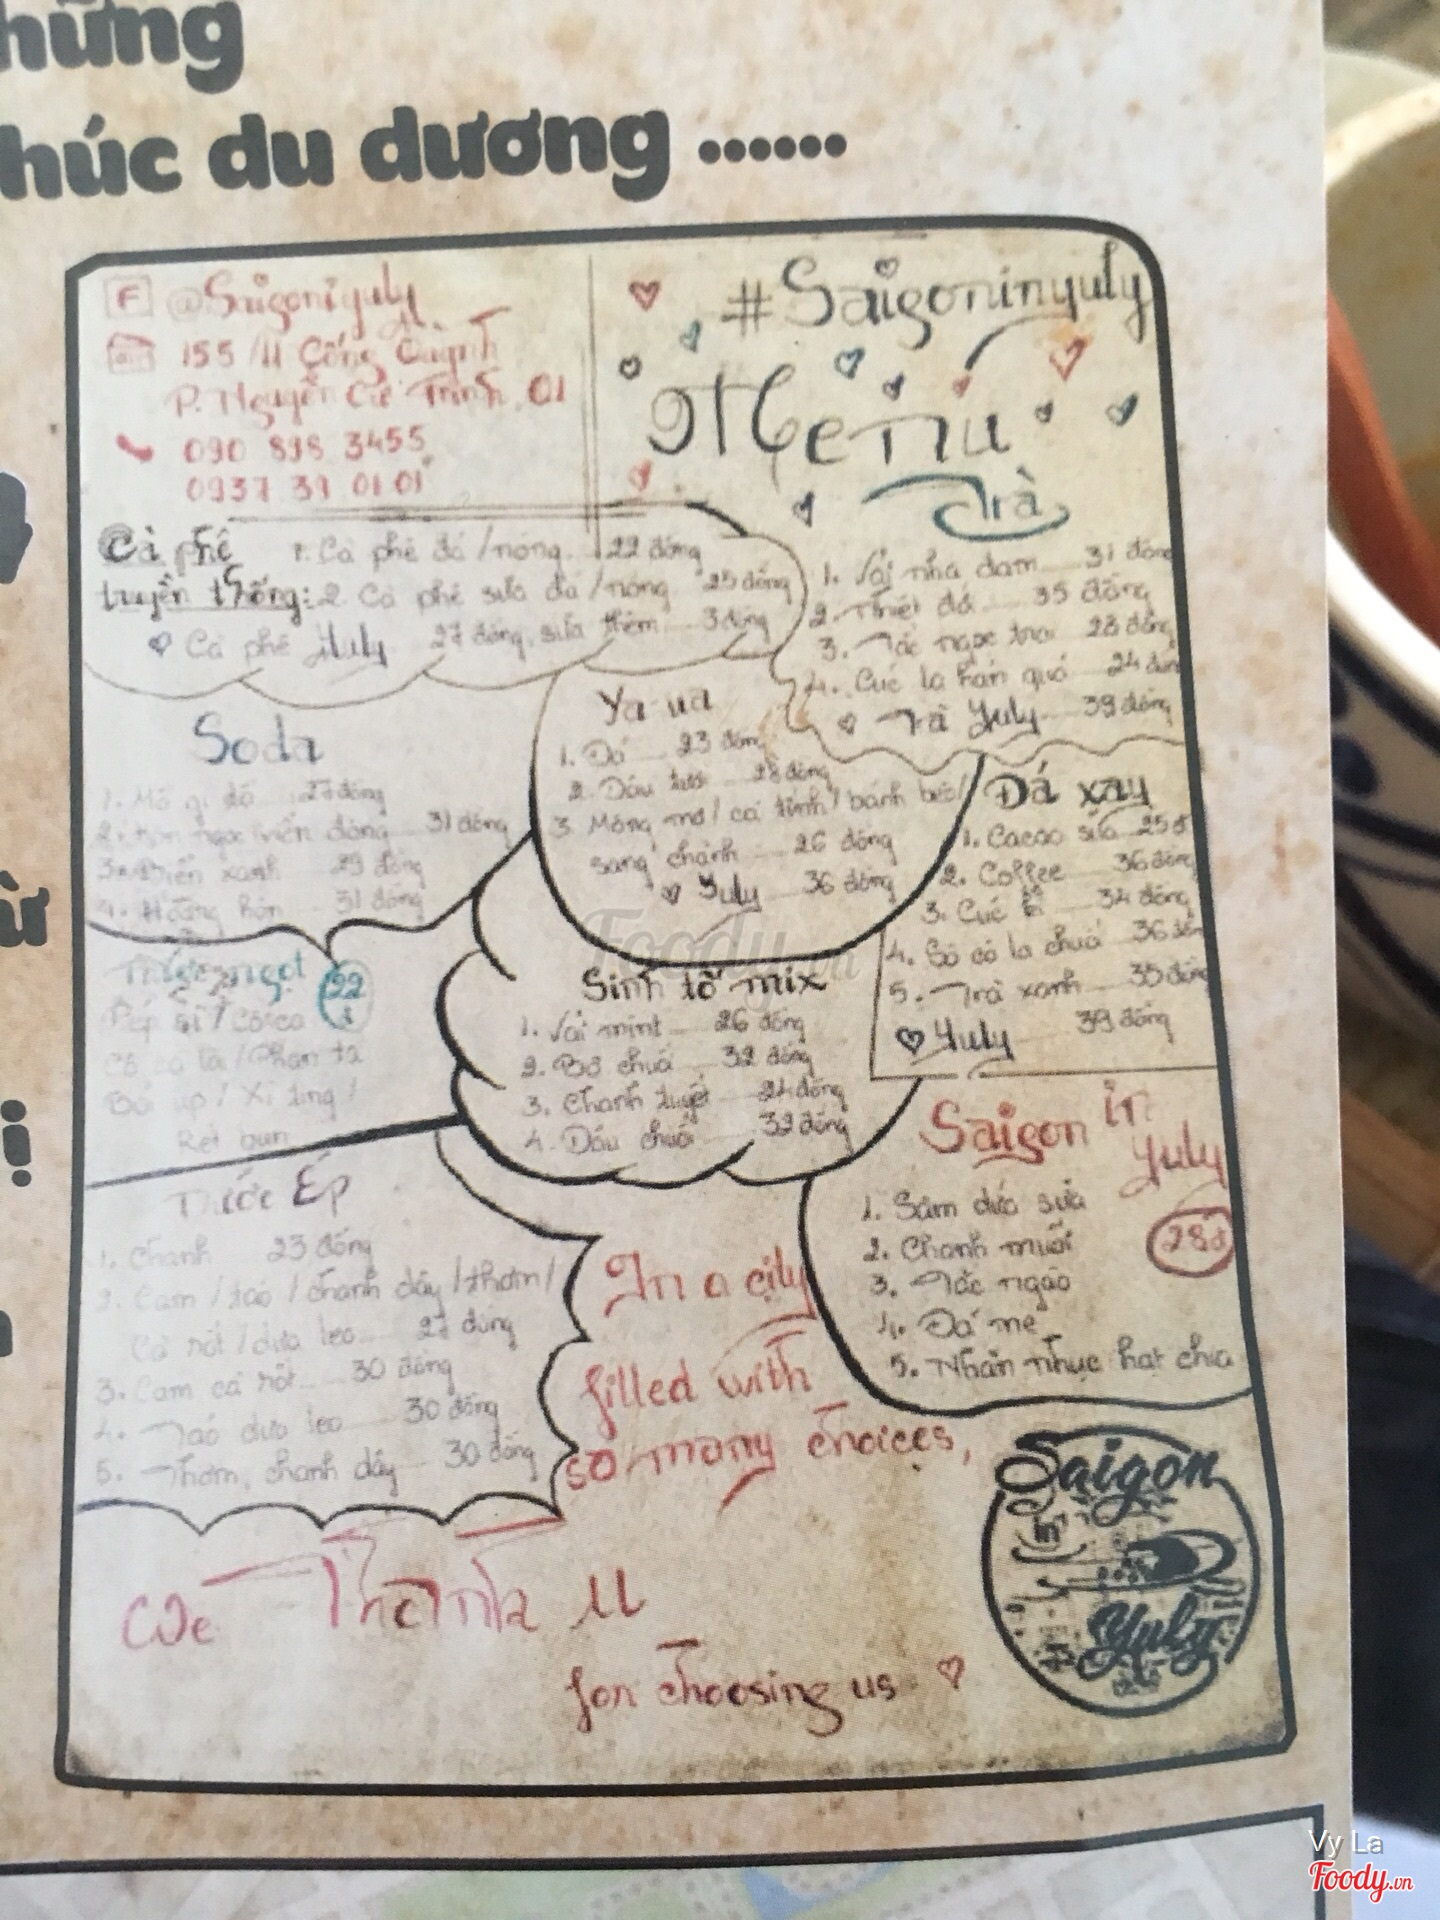 hững
húc du dương ......
F @Saigoniyuly
155/11 Cống Quỳnh
P. Nguyễn Cư Trinh, Q1
090 898 3455
0937 39 01 01
#Saigoninyuly
Menu
Cà phê
truyền thống:
1. Cà phê đá/nóng 22 đồng
2. Cà phê sữa đá/nóng 25 đồng
Cà phê Yuly 27 đồng, sữa thêm 3 đồng
Trà
1. Vải nha đam 31 đồng
2. Nhiệt đới 35 đồng
3. Tắc ngọc trai 28 đồng
4. Cúc la hán quả 24 đồng
Trà Yuly 39 đồng
Soda
1. Mờ gì đó 27 đồng
2. ngọc viễn đông 31 đồng
3. Biển xanh 29 đồng
4. Hoàng hôn 31 đồng
Ya-ua
1. Đá 23 đồng
2. Dâu tươi 28 đồng
3. Mộng mơ/cá tính/bánh bèo/
sang chảnh 26 đồng
Yuly 36 đồng
Đá xay
1. Cacao sữa 25đ
2. Coffee 36 đồng
3. Cúc 34 đồng
4. Sô cô la chuối 36 đồng
5. Trà xanh 35 đồng
Yuly 39 đồng
Nước ngọt 22
Pép si/Coca
Cô ca la/Phan ta
Bò úp/Xì ting/
Rét bun
Sinh tố mix
1. Vải mint 26 đồng
2. Bơ chuối 32 đồng
3. Chanh tuyết 24 đồng
4. Dâu chuối 32 đồng
Nước Ép
1. Chanh 23 đồng
2. Cam/táo/chanh dây/thơm/
Cà rốt/dưa leo 27 đồng
3. Cam cà rốt 30 đồng
4. Táo dưa leo 30 đồng
5. Thơm, chanh dây 30 đồng
Saigon in
Yuly
28đ
1. Sâm dứa sữa
2. Chanh muối
3. Tắc ngào
4. Đá me
5. Nhãn nhục hạt chia
In a city
filled with
so many choices,
We Thank U
for choosing us
Saigon
in
Yuly
Foody.vn
Vy La
Foody.vn